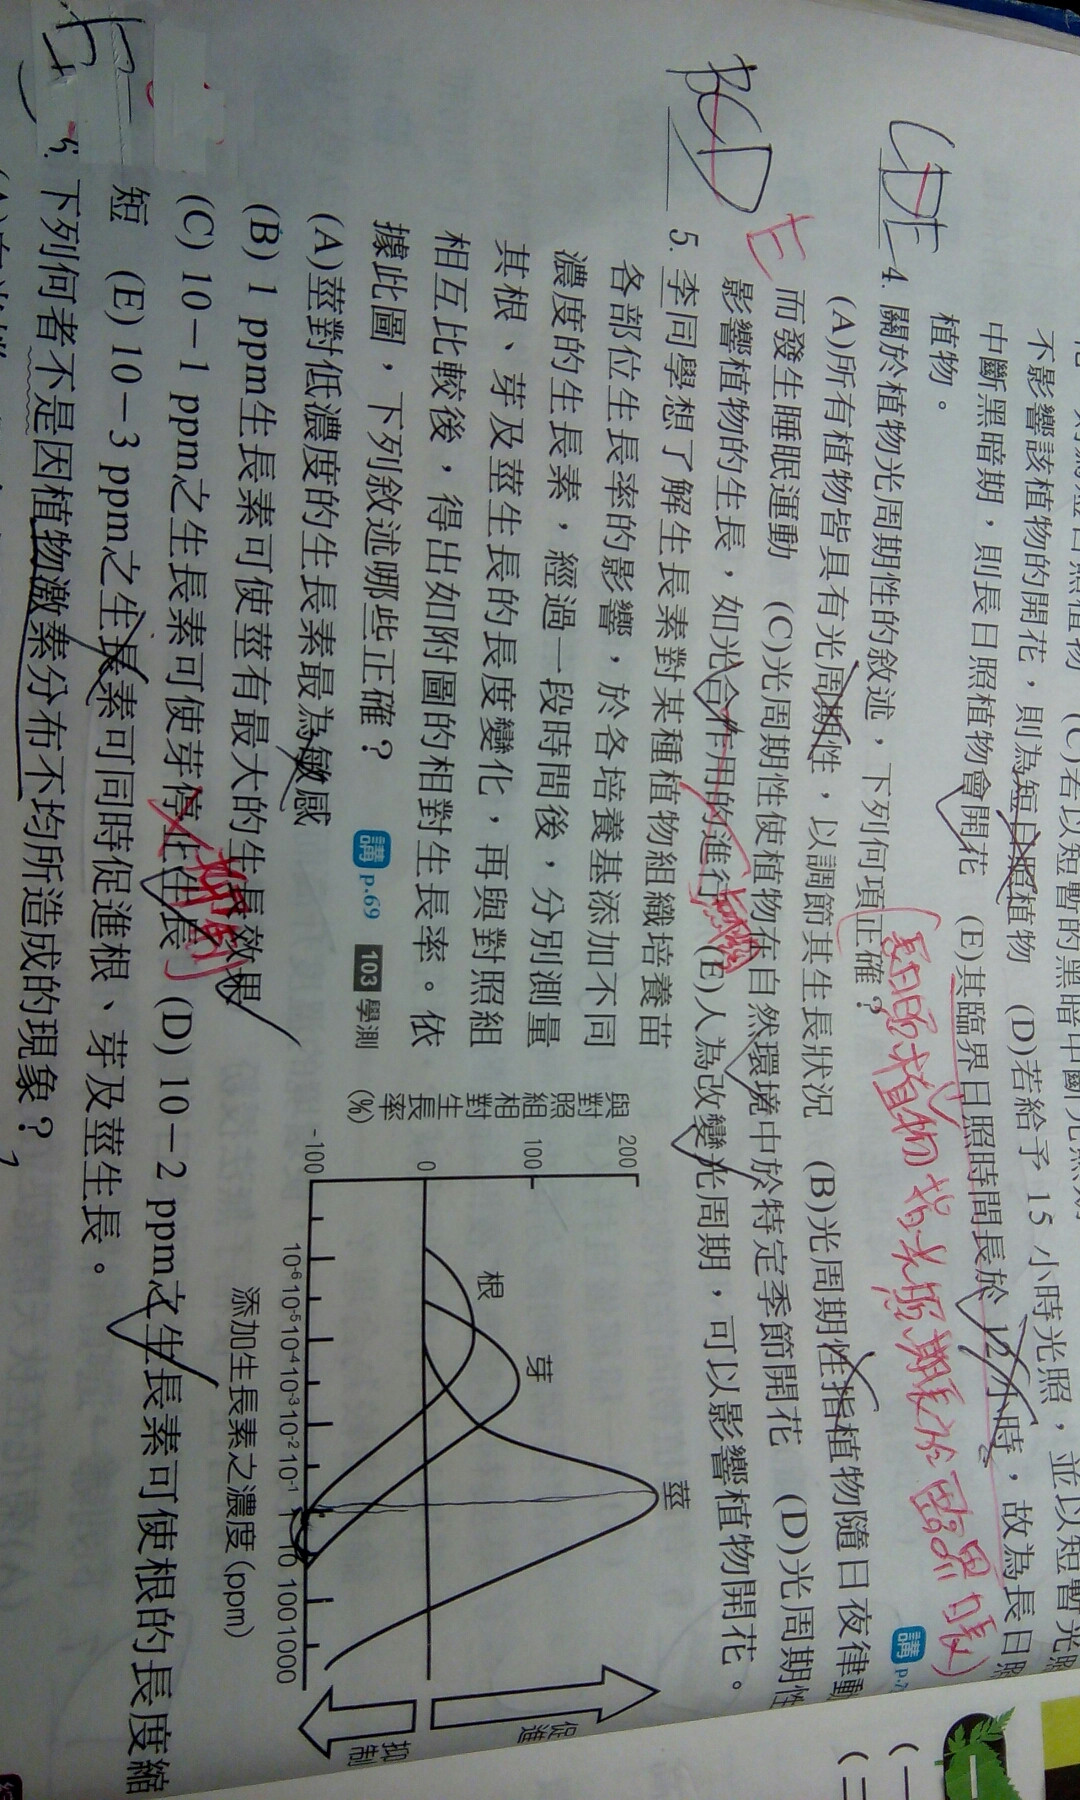 不影響該植物的開花，則為短日照植物 (D)若給予 15 小時光照，並以短暫光照
中斷黑暗期，則長日照植物會開花 (E)其臨界日照時間長於 12 小時，故為長日照
植物。
CDE 4. 關於植物光周期性的敘述，下列何項正確？ 講 p.7
(A)所有植物皆具有光周期性，以調節其生長狀況 (B)光周期性指植物隨日夜律動
而發生睡眠運動 (C)光周期性使植物在自然環境中於特定季節開花 (D)光周期性
影響植物的生長，如光合作用的進行 (E)人為改變光周期，可以影響植物開花。
BCD E 5. 李同學想了解生長素對某種植物組織培養苗
各部位生長率的影響，於各培養基添加不同
濃度的生長素，經過一段時間後，分別測量
其根、芽及莖生長的長度變化，再與對照組
相互比較後，得出如附圖的相對生長率。依
據此圖，下列敘述哪些正確？ 講 p.69 103 學測
(A)莖對低濃度的生長素最為敏感
(B) 1 ppm生長素可使莖有最大的生長效果
(C) 10－1 ppm之生長素可使芽停止生長 (D) 10－2 ppm之生長素可使根的長度縮
短 (E) 10－3 ppm之生長素可同時促進根、芽及莖生長。
下列何者不是因植物激素分布不均所造成的現象？
與對照組相對生長率(%)
200
100
0
-100
根
芽
莖
10-6 10-5 10-4 10-3 10-2 10-1 1 10 100 1000
添加生長素之濃度(ppm)
促進
抑制